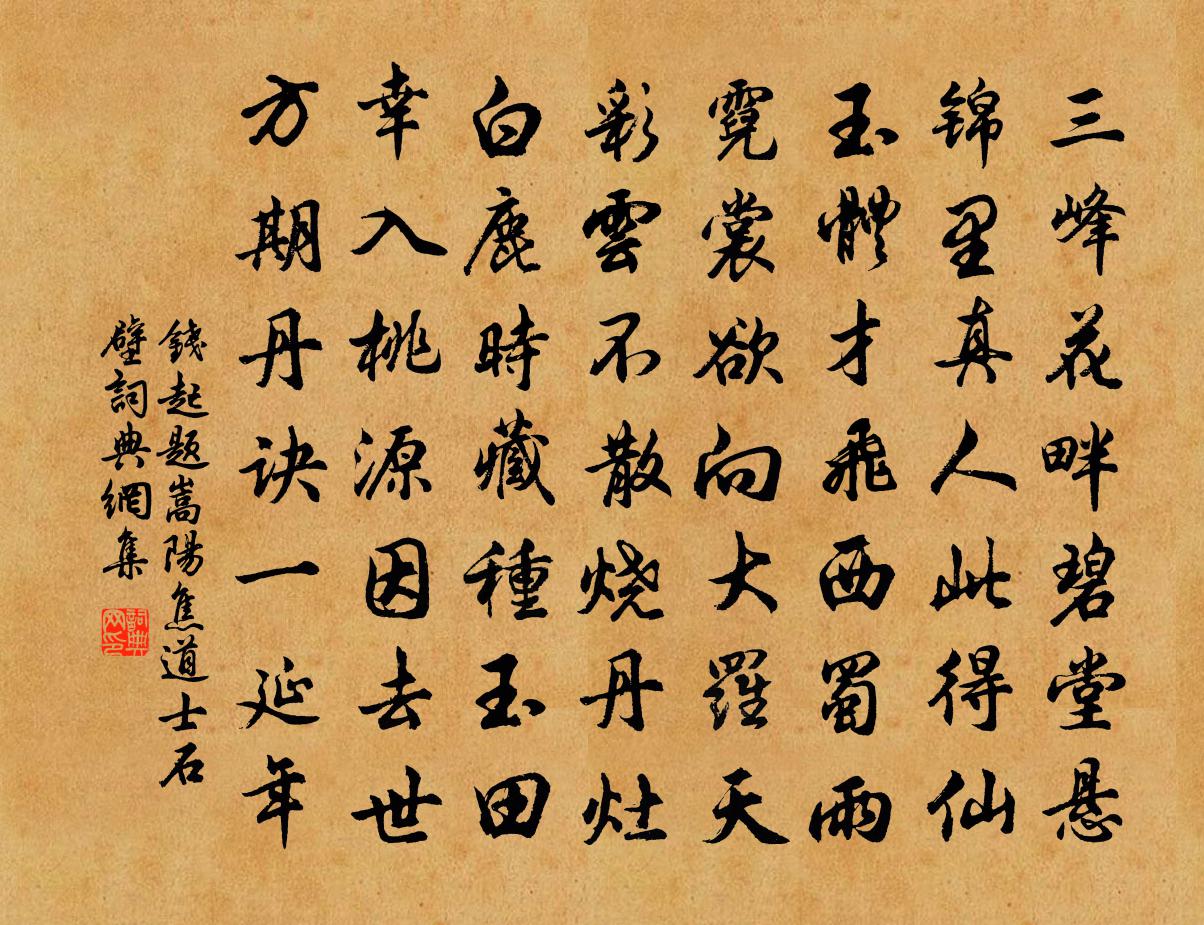 三峰花畔碧堂悬
锦里真人此得仙
玉體才飛西蜀雨
霓裳欲向大羅天
彩雲不散烧丹灶
白鹿時藏種玉田
幸入桃源因去世
方期丹诀一延年
錢起题嵩陽焦道士石
壁詞典網集
詞典网印